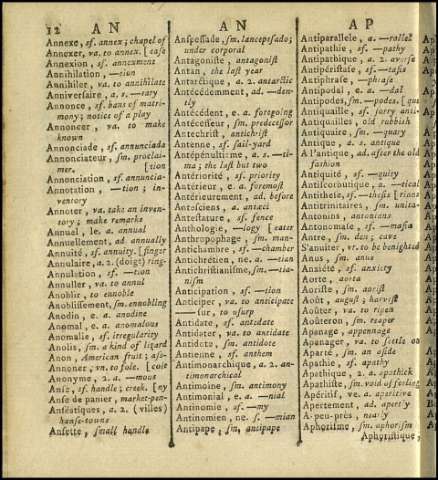 12 A N
Annexe, sf. annex; chapel of
Annexer, va. to annex. [ease
Annexion, sf. annexment
Annihilation, —tion
Annihiler, va. to annihilate
Anniversaire, a. s. —rary
Annonce, sf. bans of matri-
mony; notice of a play
Annoncer, va. to make
known
Annonciade, sf. annunciada
Annonciateur, sm. proclai-
mer. [tion
Annonciation, sf. annuncia-
Annotation, —tion; in-
ventory
Annoter, va. take an inven-
tory; make remarks
Annuel, le. a. annual
Annuellement, ad. annually
Annuité, sf. annuity. [finger
Annulaire, a. 2. (doigt) ring-
Annulation, sf. —tion
Annuller, va. to annul
Anoblir, to ennoble
Anoblissement, sm. ennobling
Anodin, e. a. anodine
Anomal, e. a. anomalous
Anomalie, sf. irregularity
Anolis, sm. a kind of lizard
Anon, American fruit; ass-
Annoner, vn. to fole. [cole
Anonyme, 2. a. —mous
Anse, sf. handle; creek. [ny
Anse de panier, market-pen-
Anséatiques, a. 2. (villes)
hanse-towns
Ansette, small handle
A N
Anspessade, sm. lancepesado;
under corporal
Antagoniste, antagonist
Antan, the last year
Antarctique, a. 2. antarctic
Antécédemment, ad. —den-
tly
Antécédent, e. a. foregoing
Antécesseur, sm. predecessor
Antechrist, antichrist
Antenne, sf. sail-yard
Antépénultième, a. s. —ti-
ma; the last but two
Antériorité, sf. priority
Antérieur, e. a. foremost
Antérieurement, ad. before
Antesciens, a. antæci
Antestature, sf. fence
Anthologie, —logy [eater
Anthropophage, sm. man-
Antichambre, sf. —chamber
Antichrétien, ne. a. —tian
Antichristianisme, sm. —tia-
nism
Anticipation, sf. —tion
Anticiper, va. to anticipate
— sur, to usurp
Antidate, sf. antidate
Antidater, va. to antidate
Antidote, sm. antidote
Antienne, sf. anthem
Antimonarchique, a. 2. an-
timonarchical
Antimoine, sm. antimony
Antimonial, e. a. —nial
Antinomie, sf. —my
Antinomien, ne. s. —mian
Antipape, sm. antipape
A P
Antiparallele, a. —rallel
Antipathie, sf. —pathy
Antipathique, a. 2. averse
Antipéristase, sf. —tasis
Antiphrase, —phrase
Antipodal, e. a. —dal
Antipodes, sm. —podes. [qui
Antiquaille, sf. sorry anti-
Antiquailles, old rubbish
Antiquaire, sm. —quary
Antique, a. s. antique
A l'antique, ad. after the old
fashion
Antiquité, sf. —quity
Antiscorbutique, a. —tical
Antithese, sf. —thesis [rians
Antitrinitaires, sm. unita-
Antonins, antonians
Antonomase, sf. —masia
Antre, sm. den; cave
S'anuiter, vr. to be benighted
Anus, sm. anus
Anxiété, sf. anxiety
Aorte, aorta
Aoriste, sm. aorist
Août, august; harvest
Aoûter, va. to ripen
Aoûteron, sm. reaper
Apanage, appennage
Apanager, va. to settle on
Aparté, sm. an aside
Apathie, sf. apathy
Apathique, 2. a. apathick
Apathiste, sm. void of feeling
Apéritif, ve. a. aperitive
Apertement, ad. apertly
A-peu-près, nearly
Aphorisme, sm. aphorism
Aphoristique,